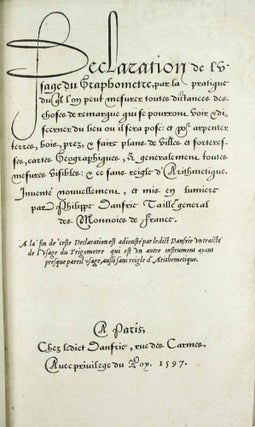 Declaration de l'V
sage du Graphometre, par la pratique
du ql l'on peut mesurer toutes distances des
choses de remarque qui se pourront voir & di
scerner du lieu ou il sera posé: et pour arpenter
terres, bois, prez, & faire plans de villes et forteres-
ses, cartes Geographiques, & generalement toutes
mesures visibles: & ce sans reigle d'Arithmetique.
Inventé nouvellement, et mis en lumiere
par Philippe Danfrie Tailleur general
des Monnoies de france.
A la fin de ceste Declaration est adiousté par ledict Danfrie un traicté
de l'Usage du Trigometre qui est un autre instrument ayant
presque pareil usage, aussi sans reigle d'Arithmetique.
A Paris,
Chez ledict Danfrie, rue des Carmes.
Avec privilege du Roy. 1597.